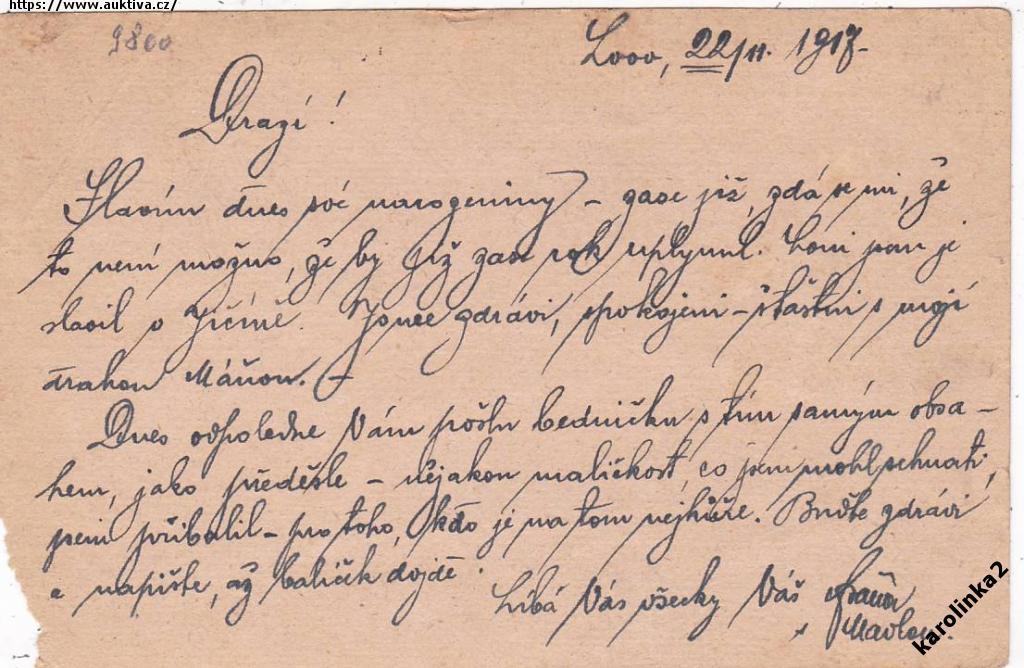 https://www.auktiva.cz/
9800
Lvov, 22/11. 1917.
Drazí!
Slavím dnes své narozeniny – zase již, zdá se mi, že
to není možno, že by již zase rok uplynul. Loni jsem je
slavil v Jičíně. Jsme zdrávi, spokojeni – šťastni s mojí
drahou Máňou. –
Dnes odpoledne Vám pošlu bedničku s tím samým obsa-
hem, jako předešle – nějakou maličkost, co jsem mohl sehnati,
jsem přibalil – pro toho, kdo je na tom nejhůře. Buďte zdrávi
a napište, až balíček dojde.
Líbá Vás všecky Váš
karolinka2